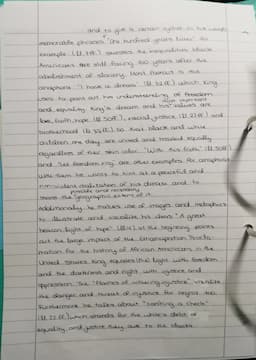 and to give it certain rythm
memorable phrases. "One hundred years later" for
example (ll. 7ff.) stresses the inequalities black
Americans are still facing 100 years after the
abolishment of slavery. Most famous is the
anaphora "I have a dream" (ll. 52ff.) which King
uses to point out his understanding of freedom
and equality. King's dream and his values are
love, faith, hope (l. 50ff.), racial justice (ll. 27ff.) and
brotherhood (ll. 32ff.) so that black and white
children one day are joined and treated equally
regardless of their skin color. "With this faith" (ll. 50ff.)
and "let freedom ring" are other examples for anaphora.
With them he wants to hint at a peaceful and
non-violent realization of his dreams and to
peaceful and necessary
stress the geographic extent of it.
Additionally he makes use of images and metaphors
to illustrate and visualize his ideas. "A great
beacon light of hope" (ll. 4) at the beginning points
out the large impact of the Emancipation Procla-
mation for the history of African Americans in the
United States. King equates the light with freedom
and the darkness and night with injustice and
oppression. The "flames of withering injustice" visualize
the danger and threat of injustice for negros too.
Furthermore he talks about "cashing a check"
(ll. 22ff.) which stands for the white's debt of
equality and justice they owe to the blacks.